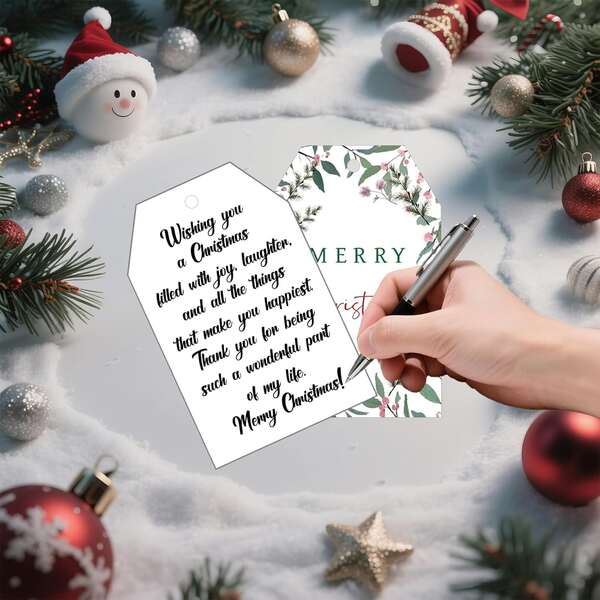 Wishing you
a Christmas
filled with joy, laughter,
and all the things
that make you happiest.
Thank you for being
such a wonderful part
of my life.
Merry Christmas!
MERRY